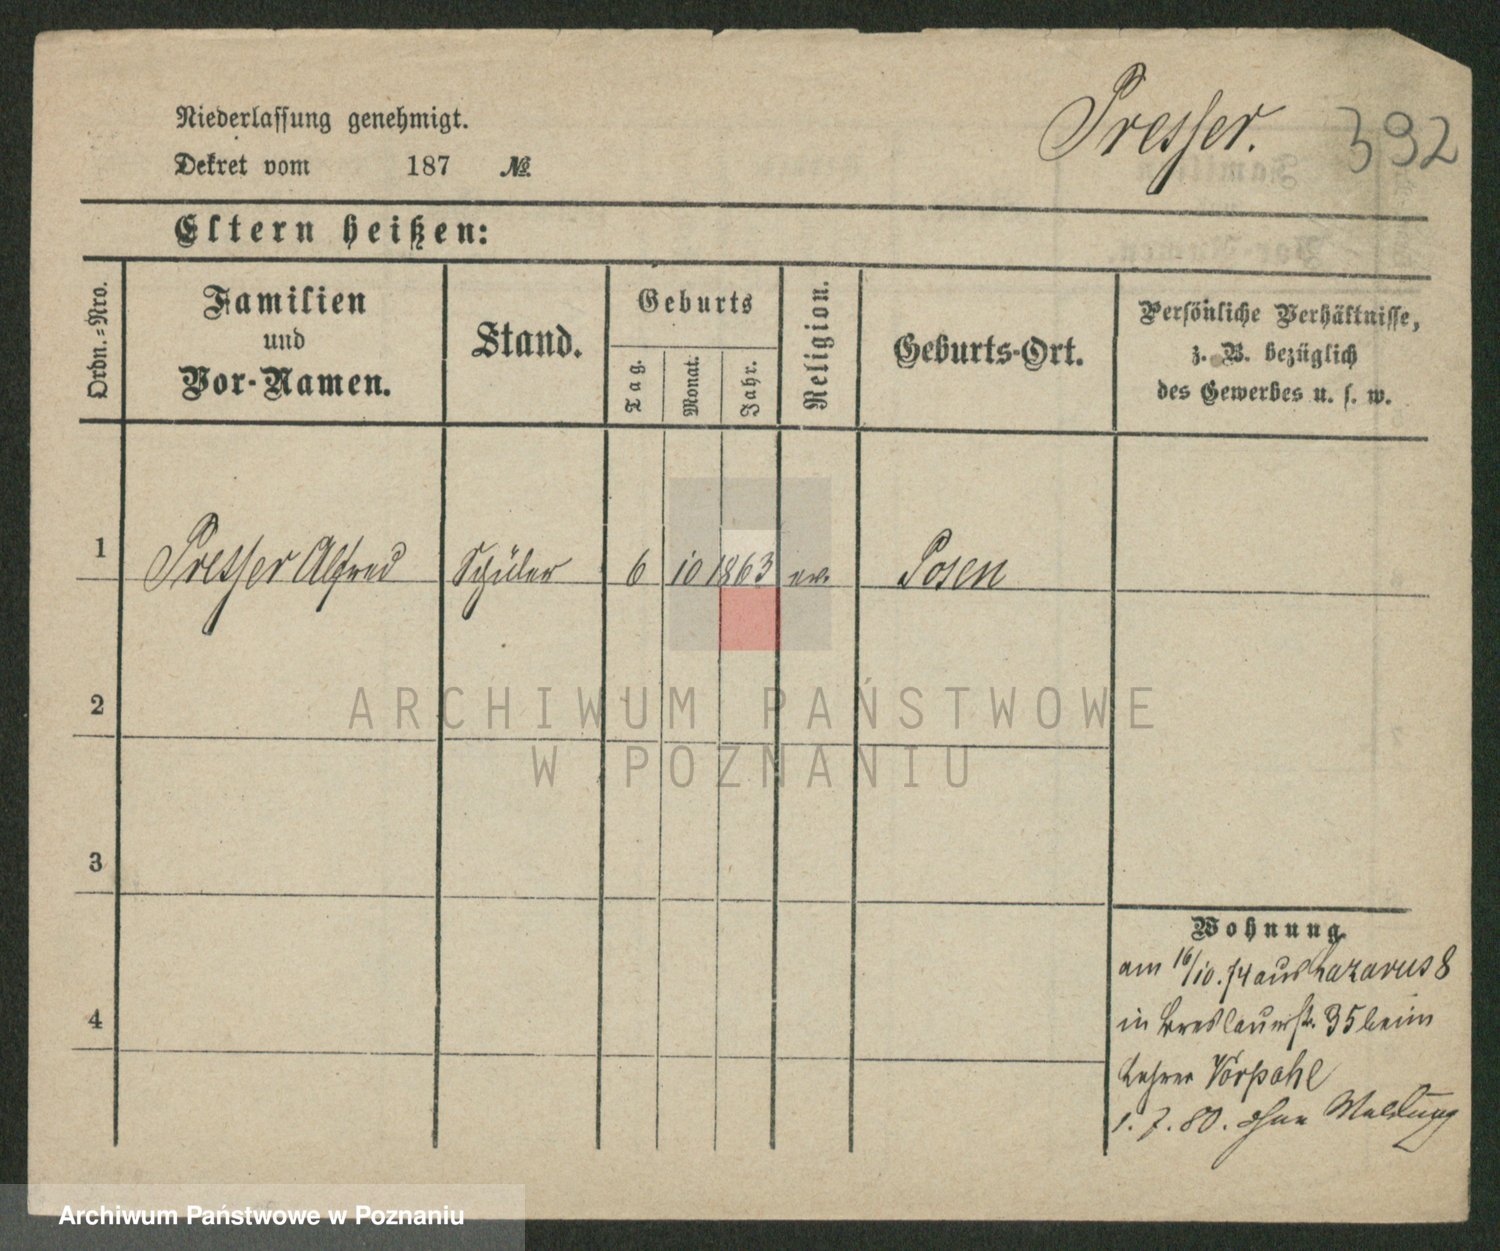 Presser. 392
Niederlassung genehmigt.
Dekret vom 187 №
Eltern heißen:
Ordn.-Nro.
Familien
und
Vor-Namen.
Stand.
Geburts
Tag.
Monat.
Jahr.
Religion.
Geburts-Ort.
Persönliche Verhältnisse,
z. B. bezüglich
des Gewerbes u. s. w.
1 Presser Alfred Schüler 6 10 1863 ev. Posen
2
3
4
Wohnung
am 16/10.74 aus Lazarus 8
in Breslauerstr. 35 beim
Lehrer Vorpahl
1.7.80. ohne Meldung
ARCHIWUM PAŃSTWOWE
W POZNANIU
Archiwum Państwowe w Poznaniu